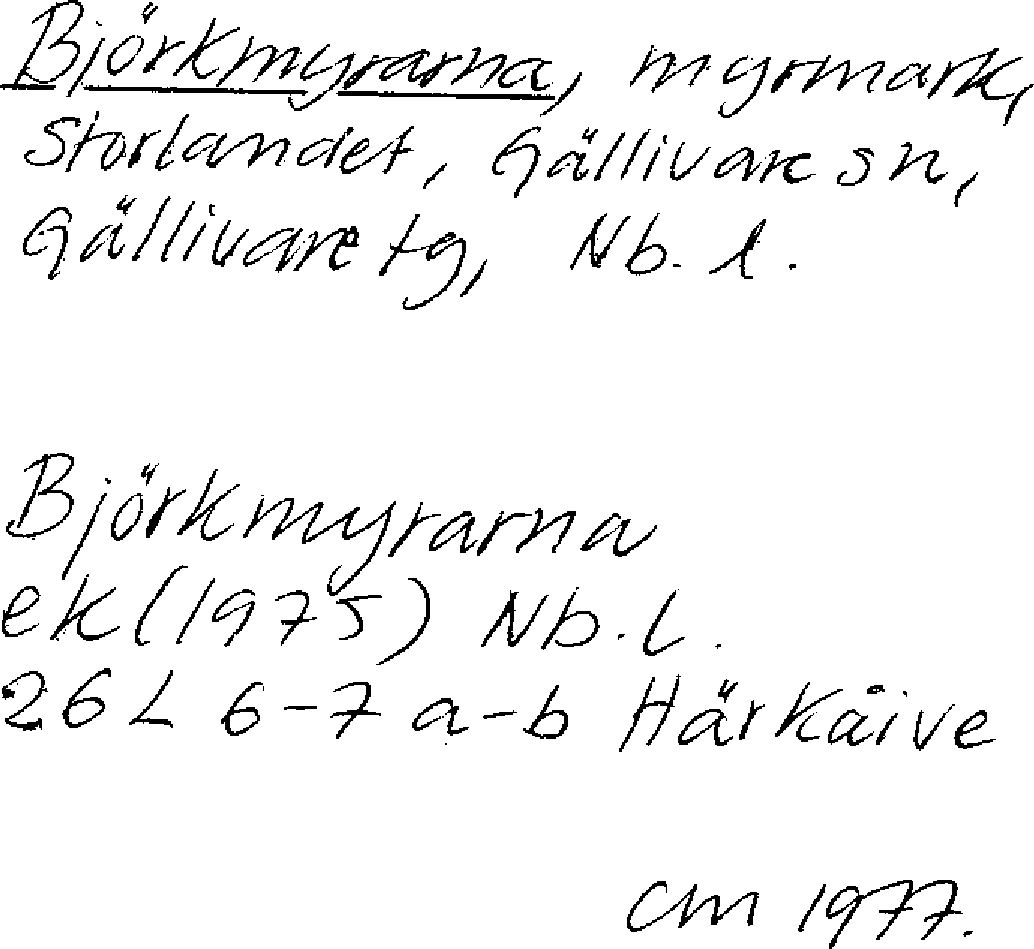 Björkmyrarna, myrmark,
Storlandet, Gällivare sn,
Gällivare tg, Nb. l.
Björkmyrarna
ek (1975) Nb. L.
26 L 6-7 a-b Härkåive
CM 1977.